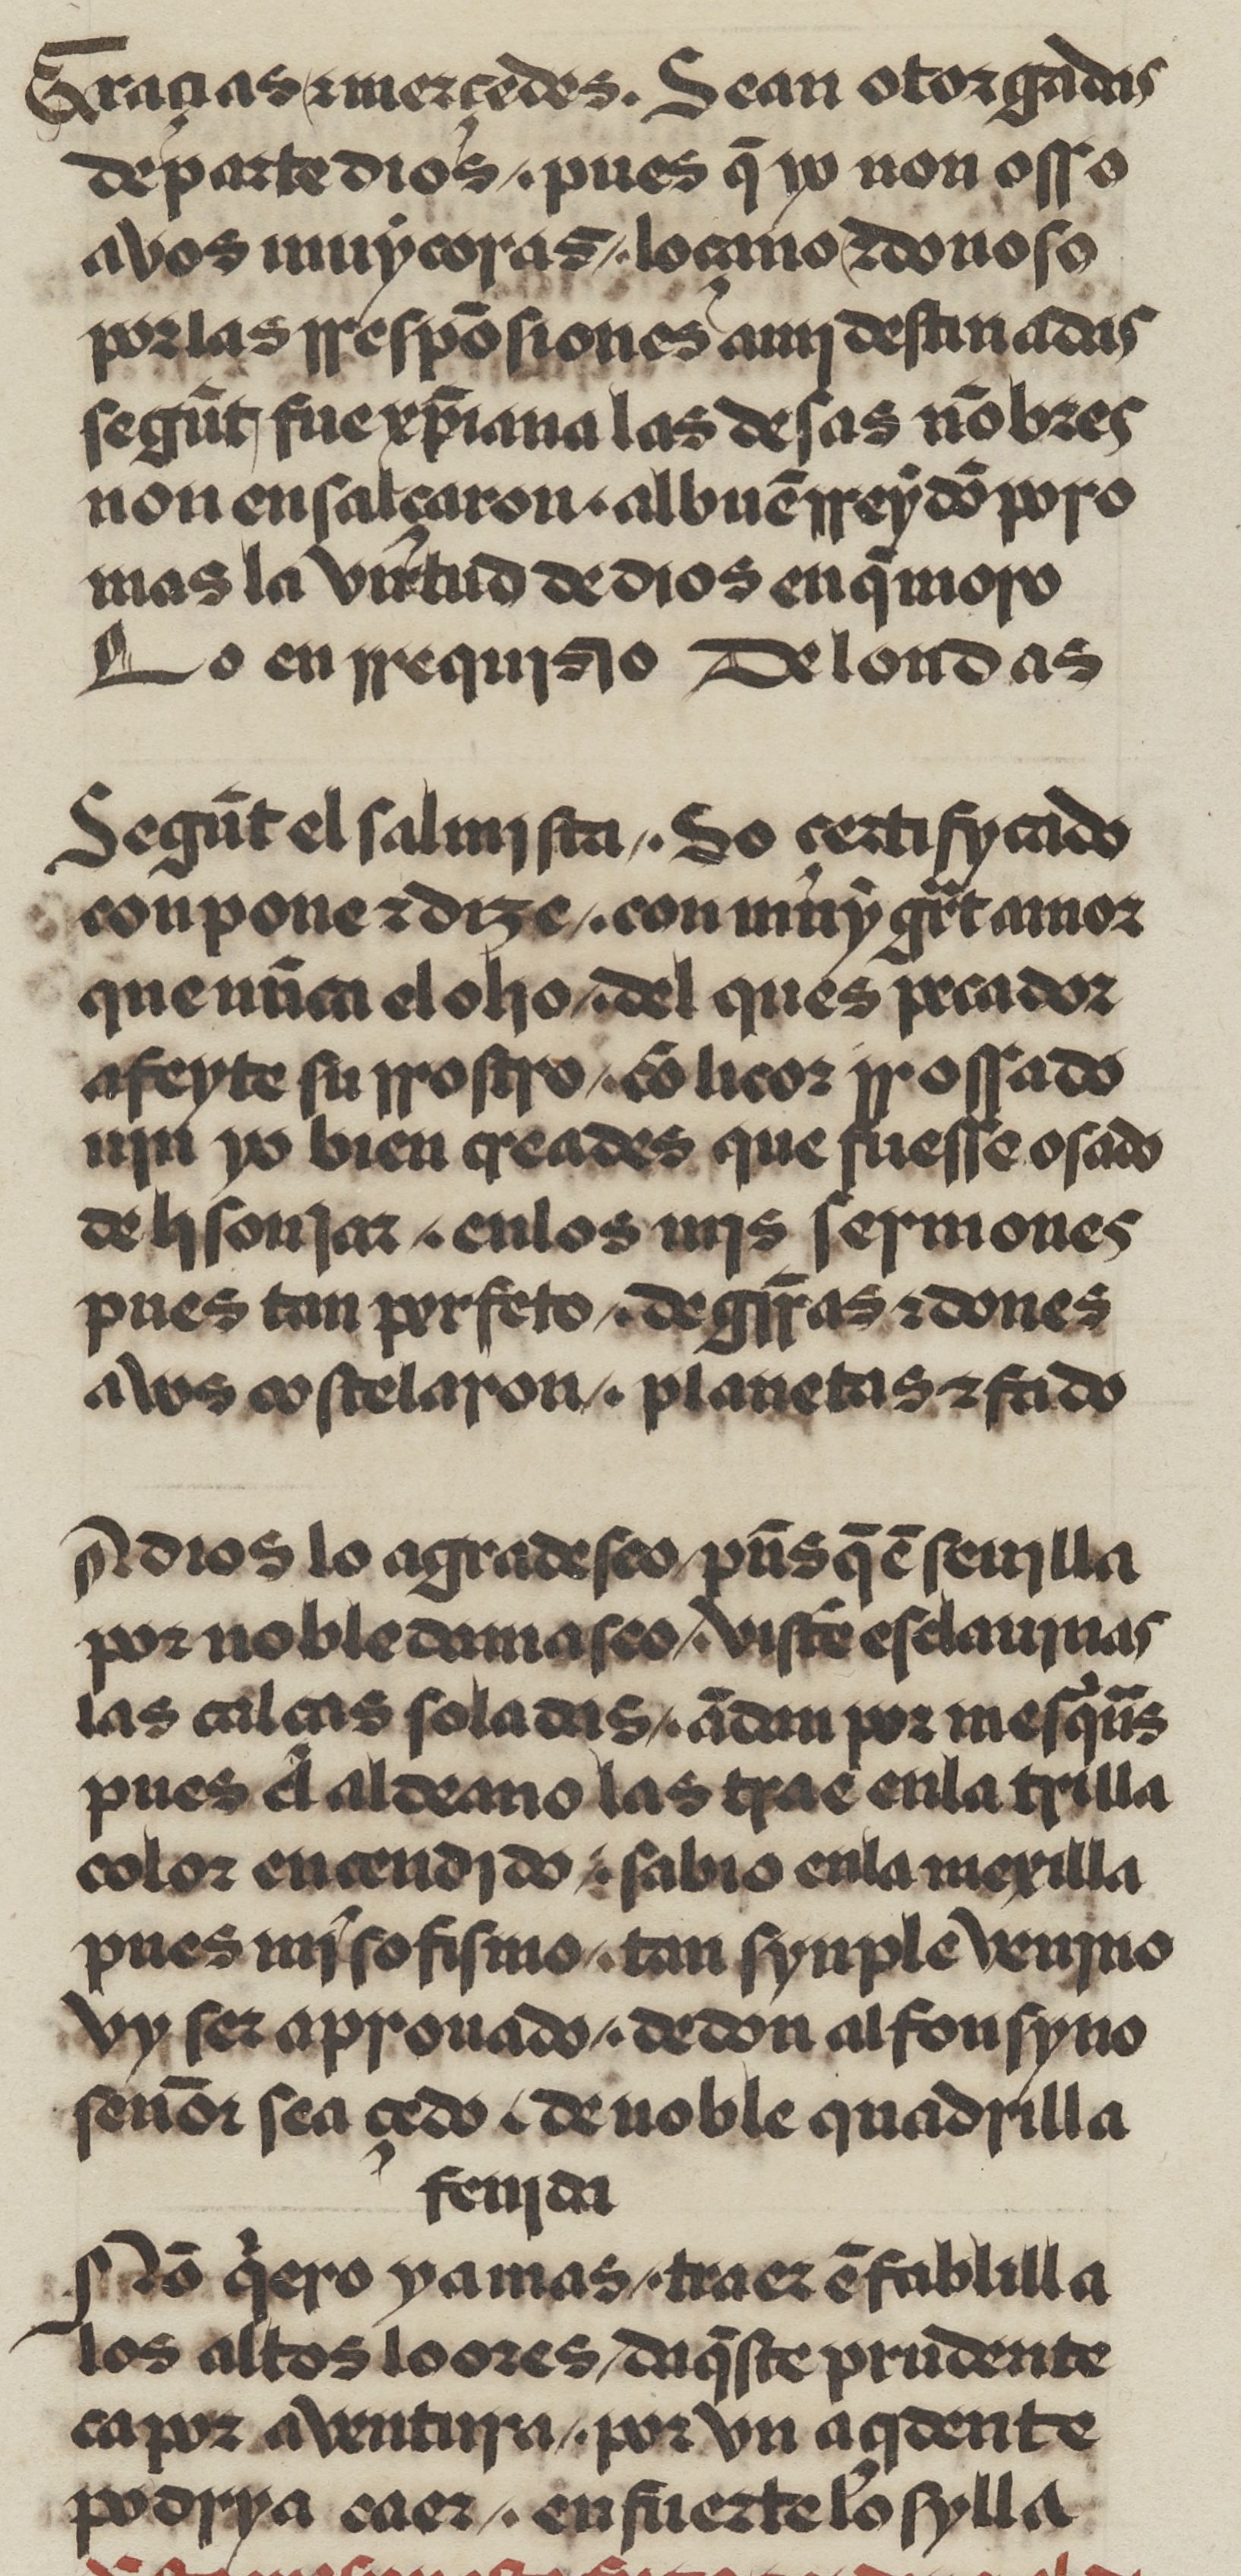 Graçias ⁊ merçedes. Sean otorgadas
de parte dios /. pues q̃ yo non osso
a vos muy coras /. loçano ⁊ donoso
por las rrespõsiones a mi destinadas
segũt fue xp̃iana las desas nõbres
non ensalçaron. al buẽ rrey dõ poro
mas la virtud de dios en q̃ moro
Lo en rrequisio De londas
Segũt el salmista /. So çertifycado
conpone ⁊ dize /. con muy grãt amor
que nũca el olio /. del ques pecador
afeyte su rrostro /. cõ licor rrossado
nin yo bien creades que fuesse osado
de lisonjar /. en los mis sermones
pues tan perfeto /. de gr̃as ⁊ dones
a vos costelaron /. planetas ⁊ fado
A dios lo agradesco / pũs q̃ ẽ seuilla
por noble damasco /. vistẽ esclauinas
las calças soladas /. ãdan por mesq̃nas
pues el aldeano las trae en la trilla
color encendido /. sabio en la mexilla
pues mi sofismo /. tan synple venino
vy ser aprouado /. de don alfonsyno
señor sea çedo /. de noble quadrilla
fenida
Nõ q̃ero ya mas /. traer ẽ fablilla
los altos loores / daq̃ste prudente
ca por aventura /. por vn açidente
podrya caer /. en fuerte losylla